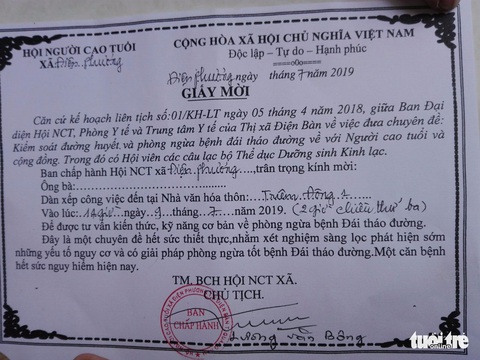 HỘI NGƯỜI CAO TUỔI
XÃ: Điện Phương
CỘNG HÒA XÃ HỘI CHỦ NGHĨA VIỆT NAM
Độc lập - Tự do - Hạnh phúc
====o0o====
Điện Phương ngày tháng 7 năm 2019
GIẤY MỜI
Căn cứ kế hoạch liên tịch số: 01/KH-LT ngày 05 tháng 4 năm 2018, giữa Ban Đại
diện Hội NCT, Phòng Y tế và Trung tâm Y tế của Thị xã Điện Bàn về việc đưa chuyên đề:
Kiểm soát đường huyết và phòng ngừa bệnh đái tháo đường về với Người cao tuổi và
cộng đồng. Trong đó có Hội viên các câu lạc bộ Thể dục Dưỡng sinh Kinh lạc.
Ban chấp hành Hội NCT xã Điện Phương, trân trọng kính mời:
Ông bà:
Dãn xếp công việc đến tại Nhà văn hóa thôn: Triêm Đông 1
Vào lúc: 14 giờ ngày 9 tháng 7 năm 2019. (2 giờ chiều thứ ba)
Để được tư vấn kiến thức, kỹ năng cơ bản về phòng ngừa bệnh Đái tháo đường.
Đây là một chuyên đề hết sức thiết thực, nhằm xét nghiệm sàng lọc phát hiện sớm
những yếu tố nguy cơ và có giải pháp phòng ngừa tốt bệnh Đái tháo đường. Một căn bệnh
hết sức nguy hiểm hiện nay.
TM. BCH HỘI NCT XÃ.
CHỦ TỊCH.
BAN
CHẤP HÀNH
Lương Văn Bông
tuổi trẻ
online